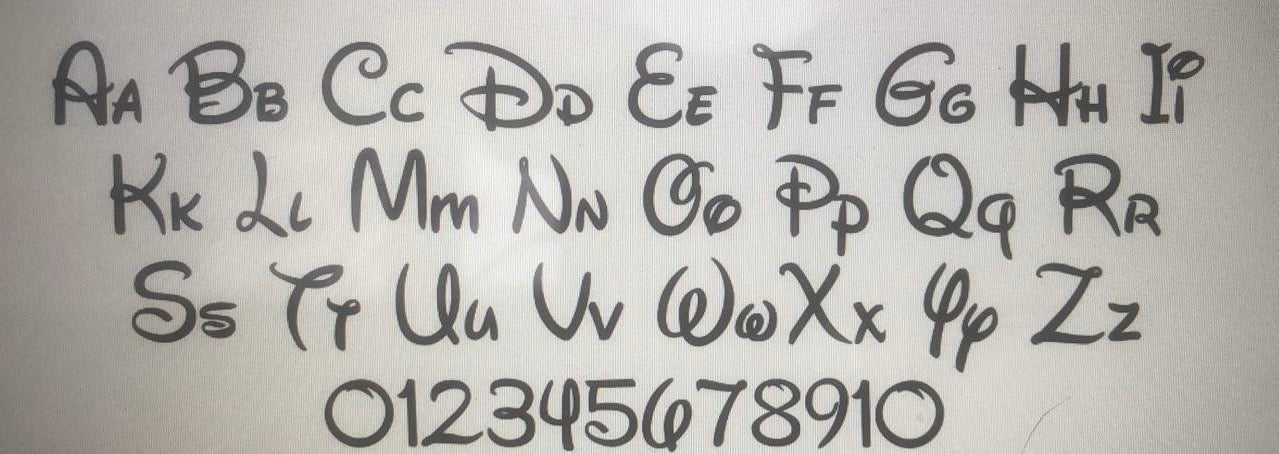 Aa Bb Cc Dd Ee Ff Gg Hh Ii
Kk Ll Mm Nn Oo Pp Qq Rr
Ss Tt Uu Vv Ww Xx Yy Zz
012345678910